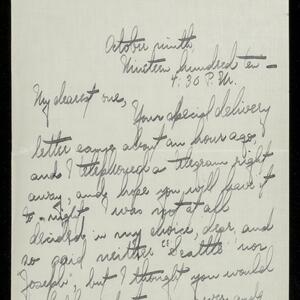 October ninth,
Nineteen hundred ten —
4:30 P.M.
My dearest one,
Your special delivery
letter came about an hour ago,
and I telephoned a telegram right
away, and hope you will have it
to-night. I was not at all
decided in my choice, dear, and
so said neither "Seattle" nor
Joseph", but I thought you would